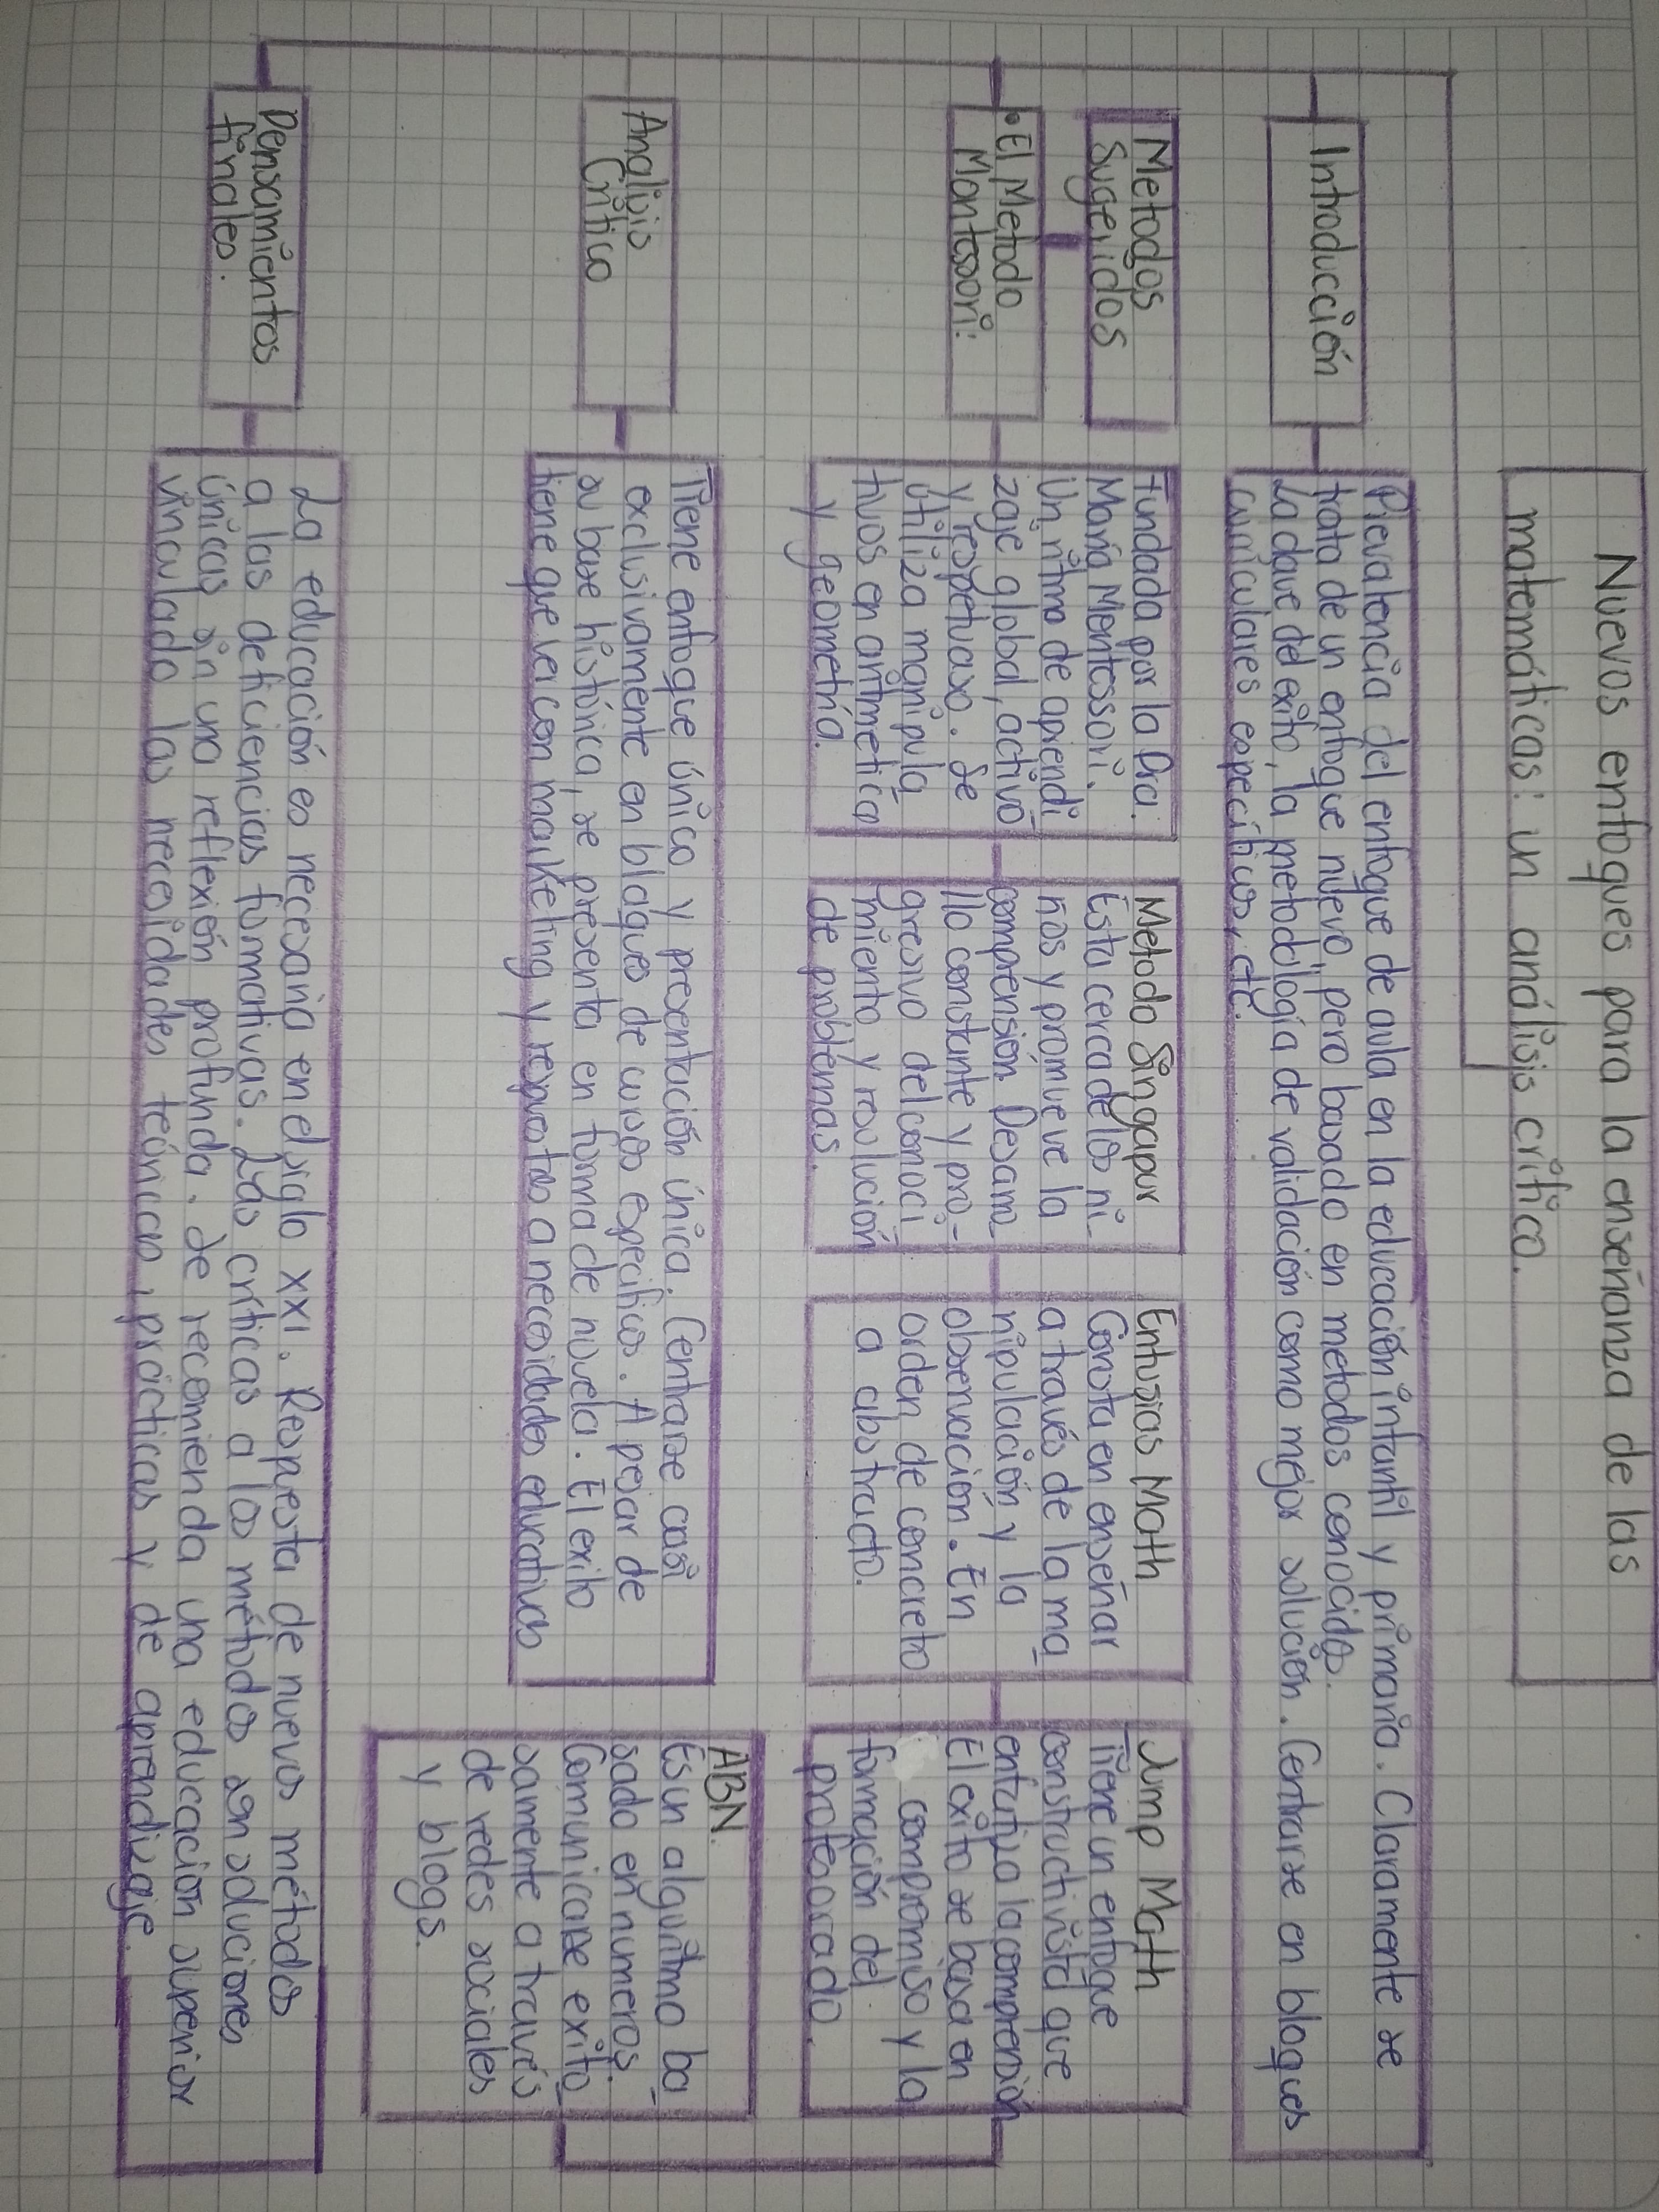 Nuevos enfoques para la enseñanza de las
matemáticas: un análisis crítico.
Introducción
Prevalencia del enfoque de aula en la educación infantil y primaria. Claramente se
trata de un enfoque nuevo, pero basado en metodos conocidos.
La clave del exito, la metodología de validación como mejor solución. Centrarse en bloques
curriculares específicos, etc.
Metodos
Sugeridos
• El Metodo
Montessori:
Fundada por la Dra.
María Montessori.
Un ritmo de aprendi
zaje global, activo
y respetuoso. Se
utiliza manipula
tivos en aritmetica
y geometría.
Metodo Singapur
Esta cerca de los ni
ños y promueve la
comprensión. Desarro
llo constante y pro-
gresivo del conoci
miento y resolución
de problemas.
Entusias Math
Consta en enseñar
a través de la ma
nipulación y la
observación. En
orden de concreto
a abstracto.
Jump Math
Tiene un enfoque
constructivista que
enfatiza la comprensión
El exito se basa en
compromiso y la
formación del
profesorado.
ABN.
Es un algoritmo ba
sado en numeros.
Comunicarse exito
samente a través
de redes sociales
y blogs.
Analisis
Crítico
Tiene enfoque único y presentación única. Centrarse casi
exclusivamente en bloques de cursos especificos. A pesar de
su base histórica, se presenta en forma de novela. El exito
tiene que ver con marketing y respuestas a necesidades educativas
Pensamientos
finales.
La educación es necesaria en el siglo XXI. Respuesta de nuevos métodos
a las deficiencias formativas. Las críticas a los métodos son soluciones
únicas sin una reflexión profunda. Se recomienda una educación superior
vinculado las necesidades teóricas, prácticas y de aprendizaje.